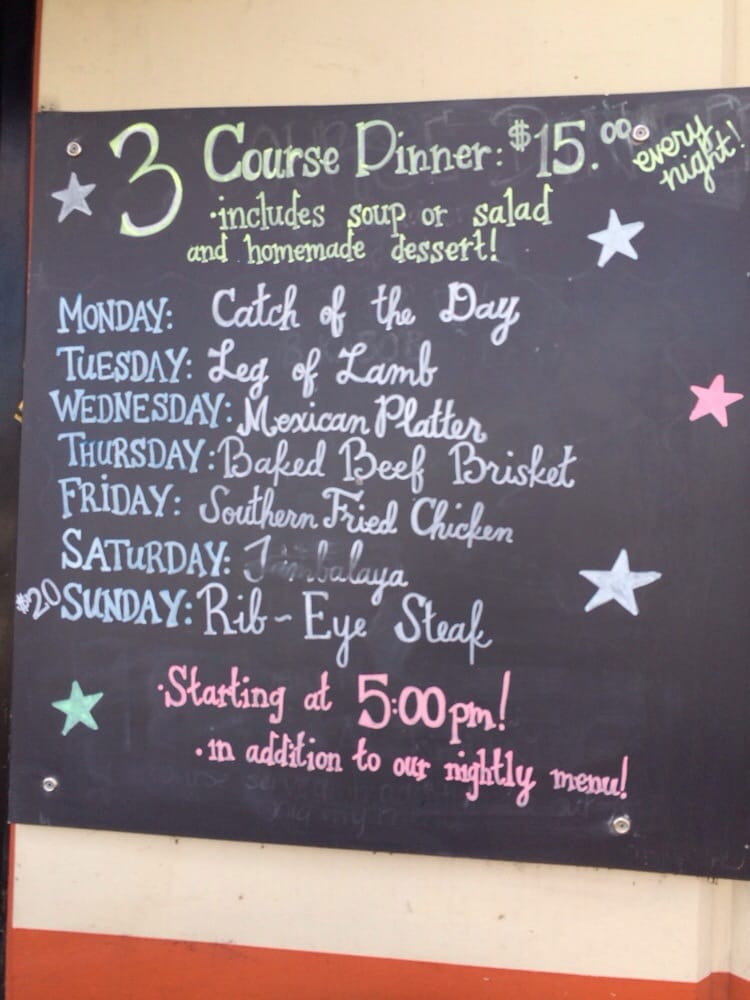 3 Course Dinner: $15.00 every night!
·includes soup or salad
and homemade dessert!
MONDAY: Catch of the Day
TUESDAY: Leg of Lamb
WEDNESDAY: Mexican Platter
THURSDAY: Baked Beef Brisket
FRiDAY: Southern Fried Chicken
SATURDAY: Jambalaya
$20 SUNDAY: Rib-Eye Steak
·Starting at 5:00pm!
·in addition to our nightly menu!